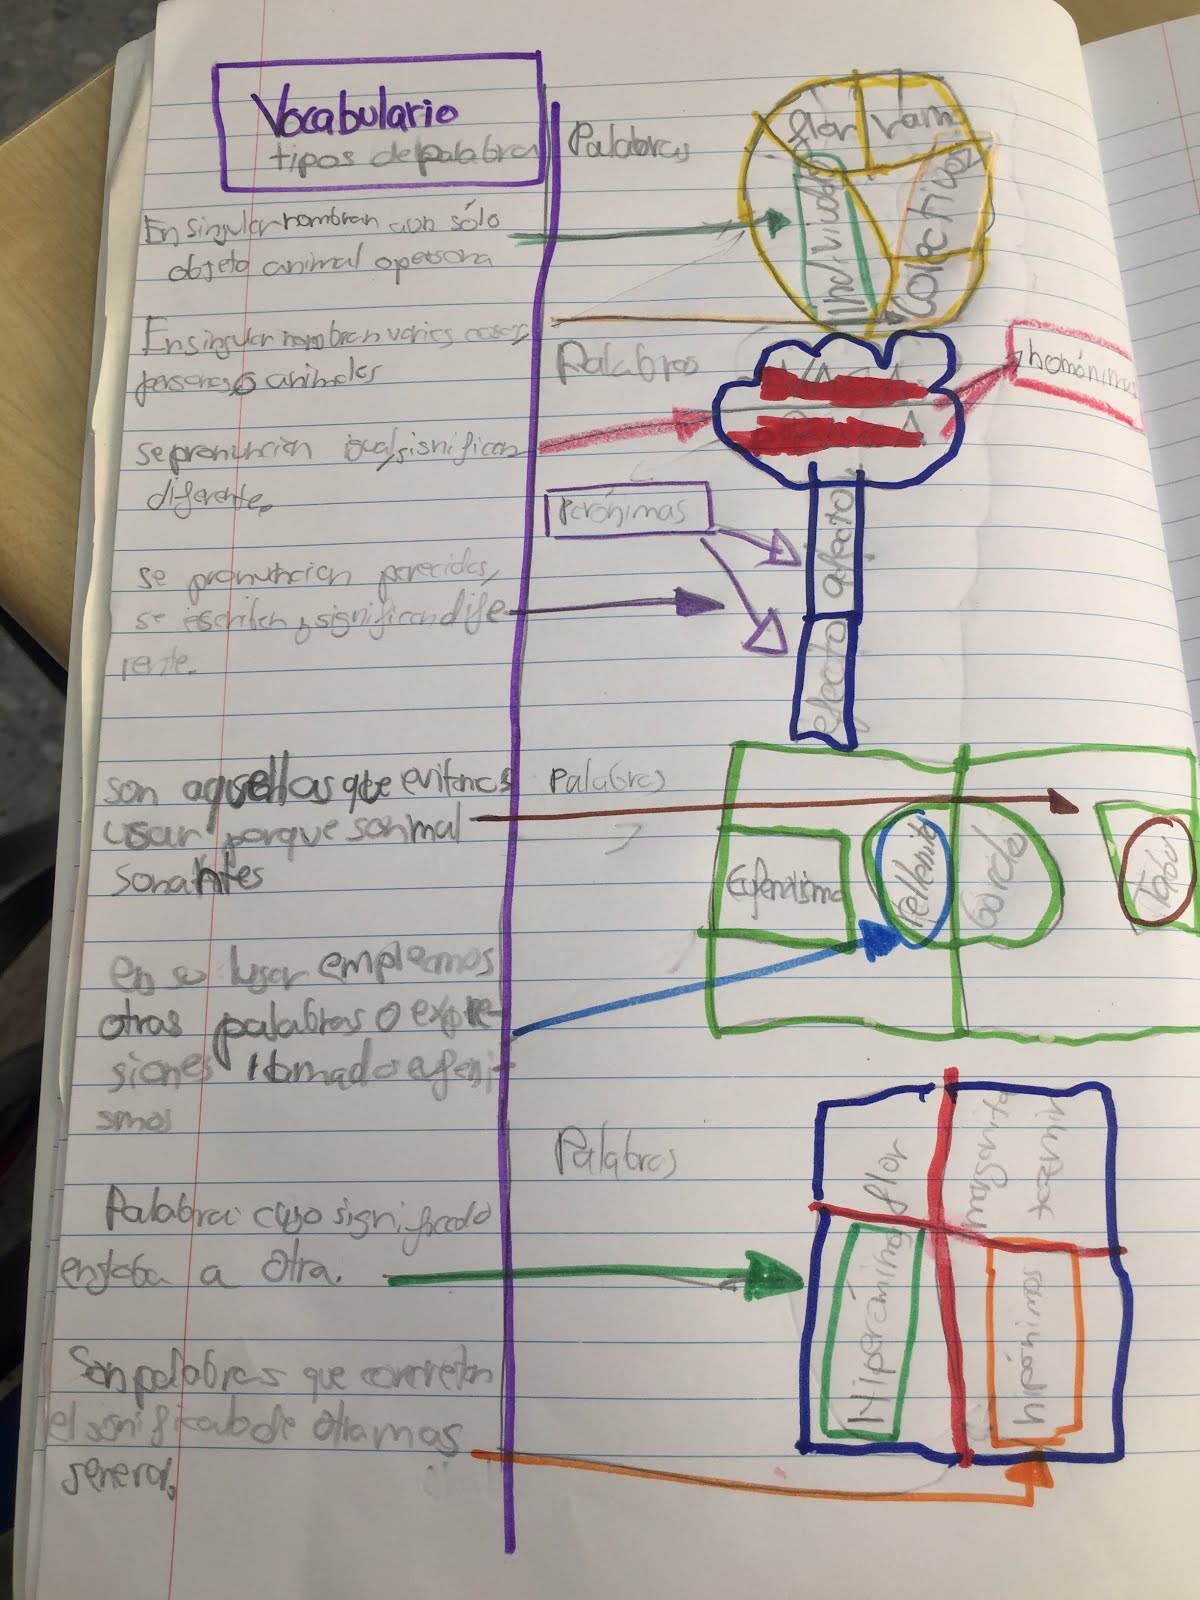 Vocabulario
tipos de palabra
En singular nombran aun sólo
objeto animal o persona
En singular nombran varias cosas,
personas o animales
se pronuncian igual, significan
diferente.
se pronuncian parecidas,
se escriben y significan dife
rente.
son aquellas que evitamos
usar porque son mal
sonantes
en su lugar emplemos
otras palabras o expre-
siones llamado
smos
Palabra cuyo significado
a otra.
Son palabras que concretan
el significado de otra mas
general.
Palabras
flor
ram
Individuales
Colectivos
Palabras
homónimas
Parónimas
afecto
efecto
Palabras
Eufemismo
rellenito
Gordo
Tabú
Palabras
flor
margarita
Hiperónimo
hipónimos